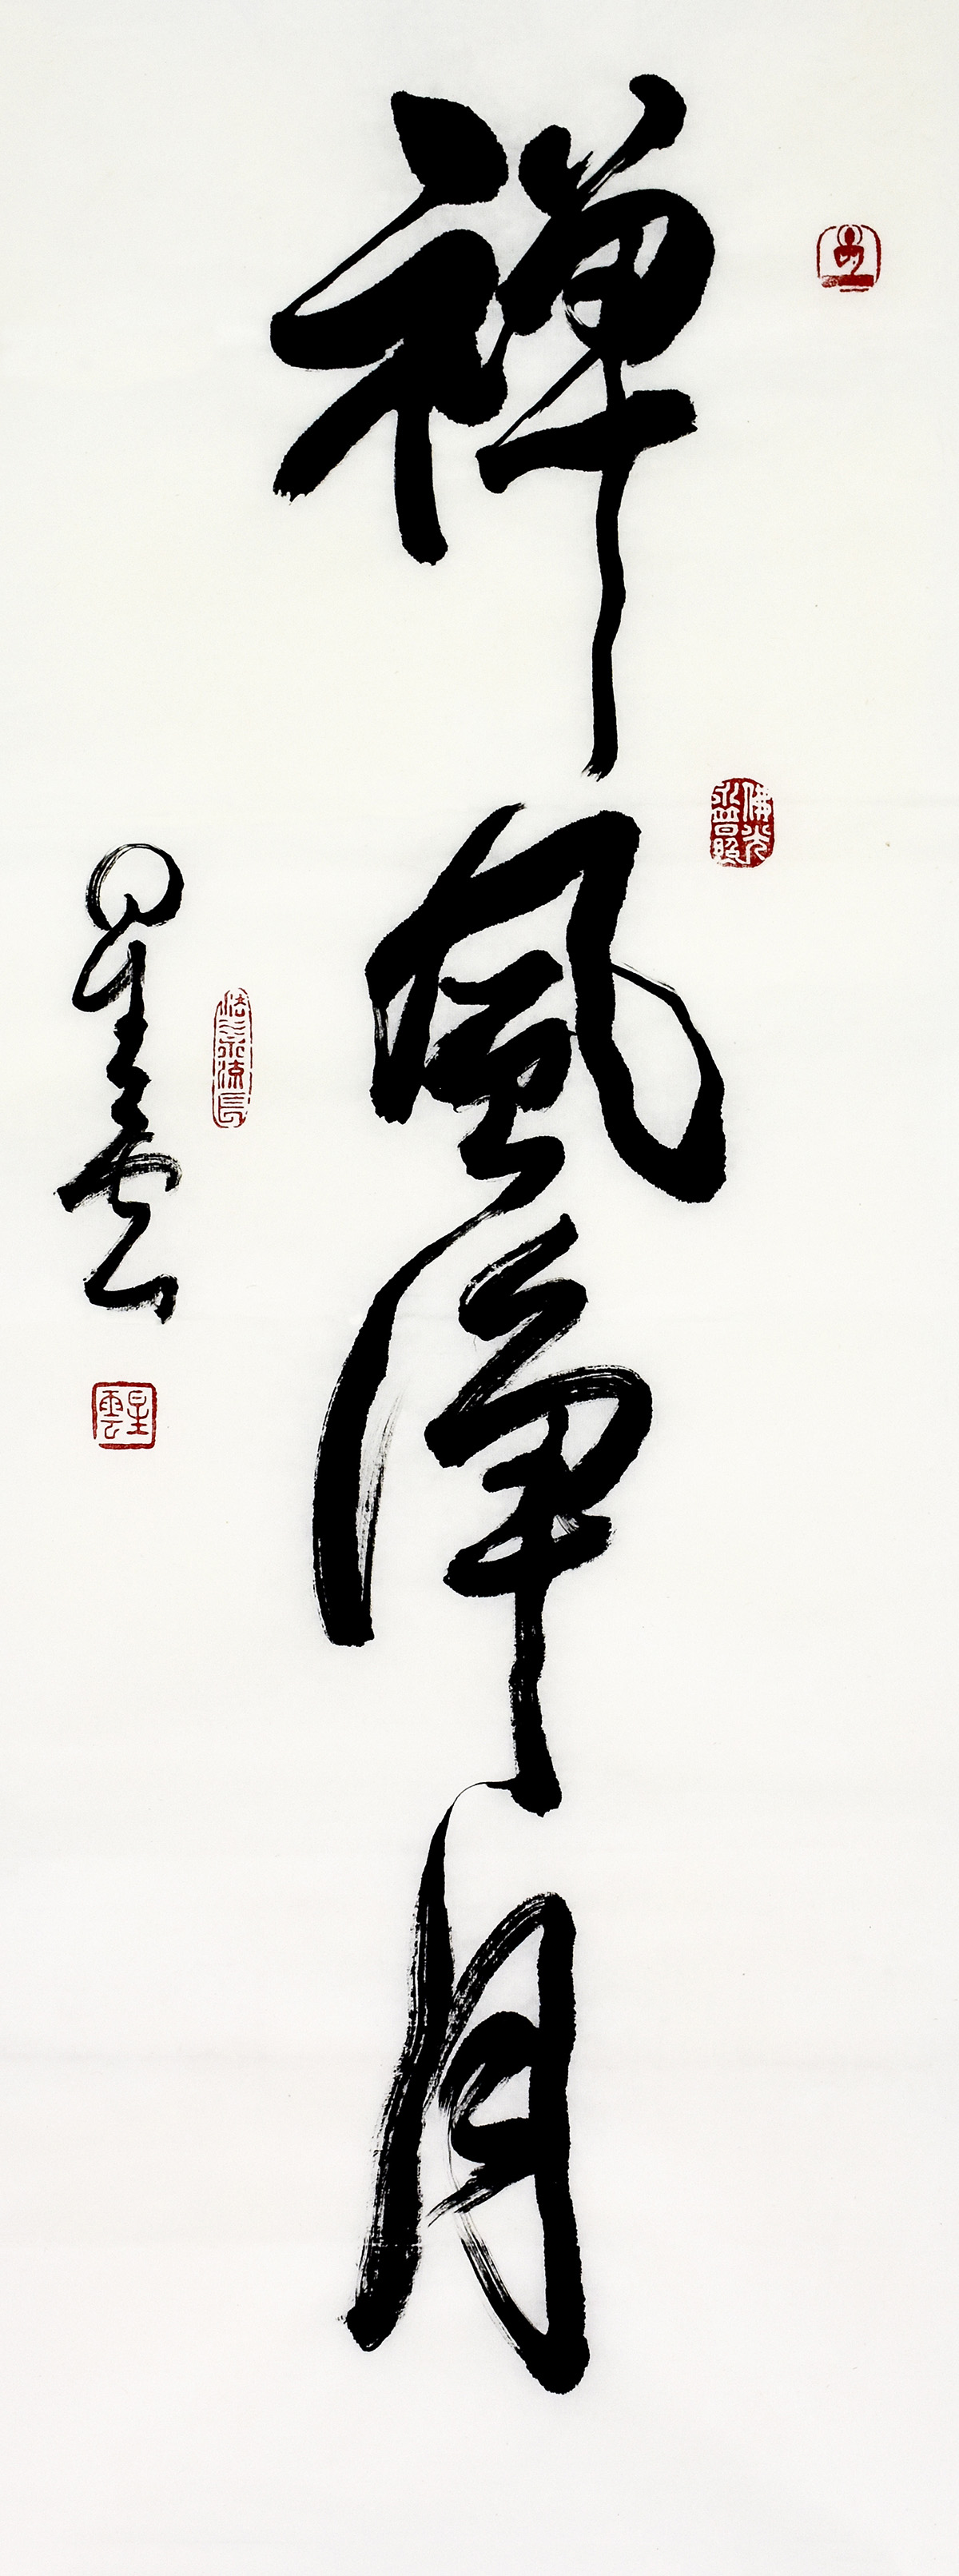 禪風淨月
佛光永普照
星雲
法水流長
星雲